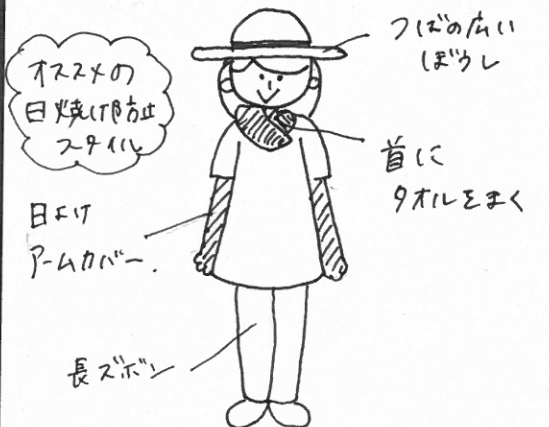 オススメの
日焼け防止
スタイル
つばの広い
ぼうし
首に
タオルをまく
日よけ
アームカバー.
長ズボン